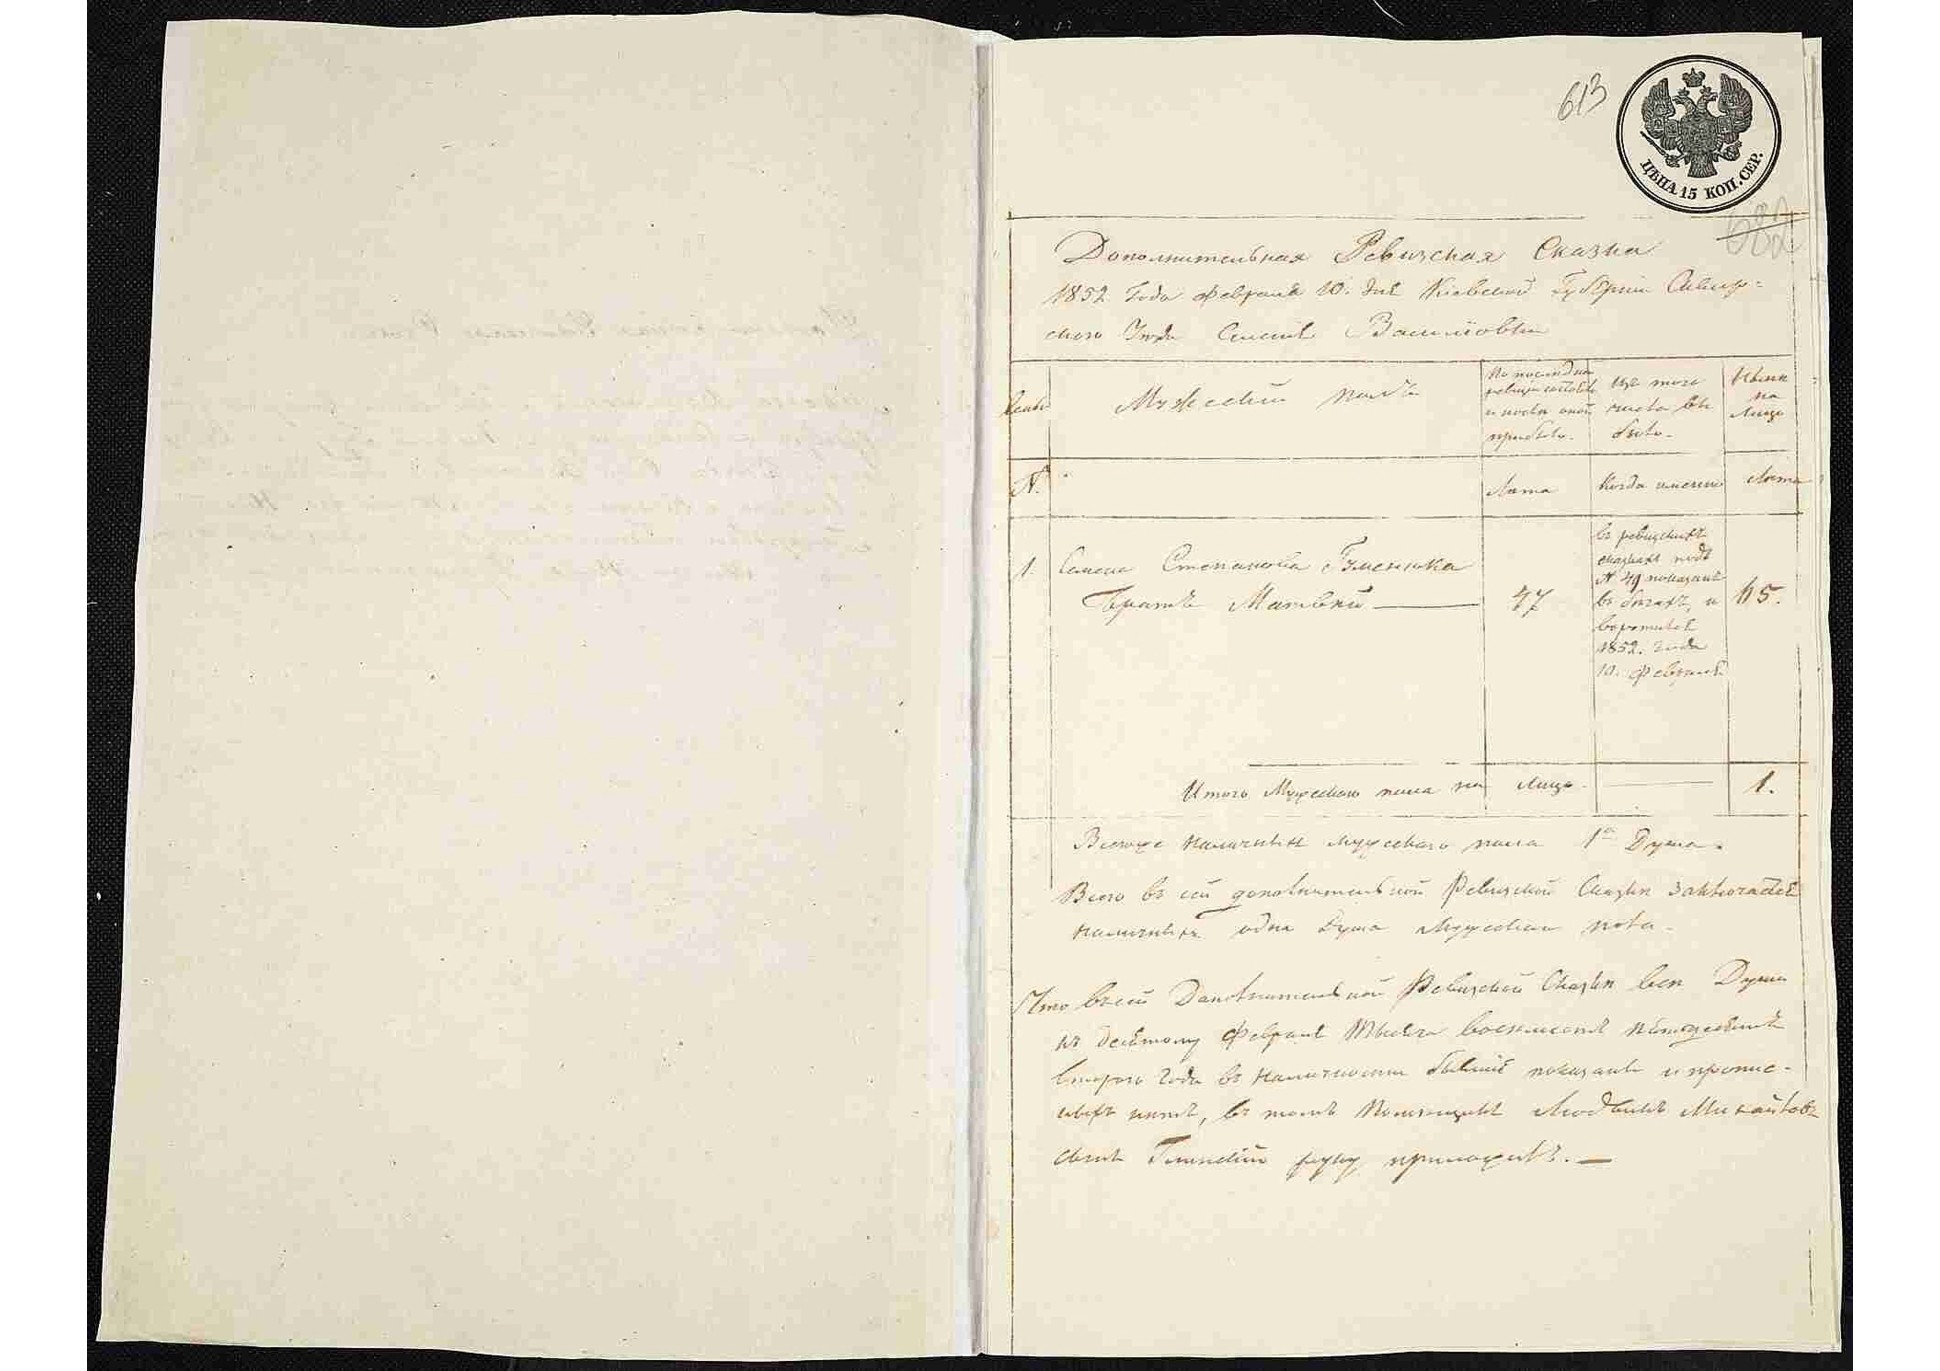 613
ЦѢНА 15 КОП. СЕР.
682
Дополнительная Ревизская Сказка
1852 Года Февраля 10. дня Киевской Губернiи Сквир=
скаго Уѣзда Селенiя Василiовки
Мужескiй полъ
По послѣдней ревизiи состояло и послѣ оной прибыло.
Изъ того числа выбыло.
Нынѣ на Лицо
№.
Лѣта
Когда именно
Лѣта
1.
Семена Степанова Гуменюка
Братъ Матвей
47
въ ревизскихъ
сказкахъ подъ
№ 49 показанъ
въ бѣгахъ, и
воротился
1852. года
10. Февраля
65.
Итого Мужескаго пола на Лицо.
1.
Всего наличныхъ мужескаго пола 1а Душа.
Всего въ сей дополнительной Ревизской Сказки заключается
наличныхъ одна Душа Мужескаго пола.
Что въ сей Дополнительной Ревизской Сказки все Души
къ десятому Февраля тысяча восемсотъ пятдесятъ
втораго Года въ наличности бывшiя показаны и пропис-
ныхъ нѣтъ, въ томъ Помещикъ Людвикъ Михайловъ
сынъ Глинскiй руку приложилъ.